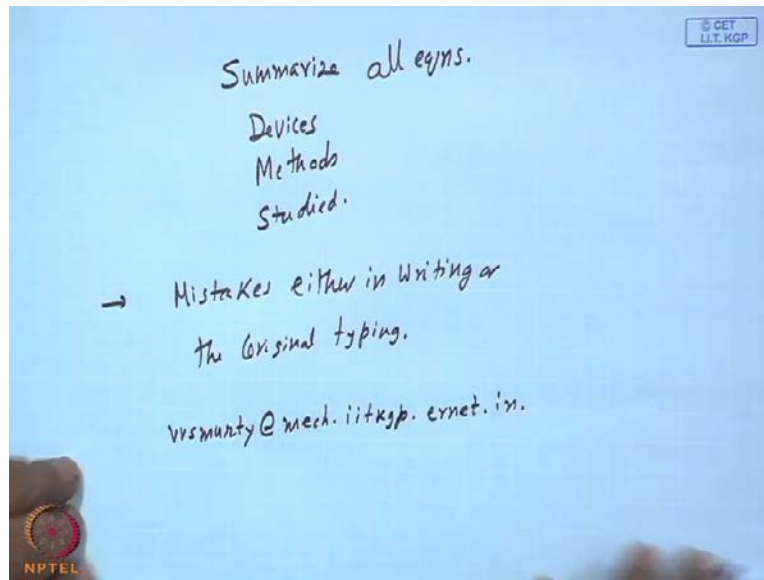 © CET
I.I.T. KGP
Summarize all eqns.
Devices
Methods
Studied.
→ Mistakes either in Writing or
the original typing.
vvsmunty@mech.iitkgp.ernet.in.
NPTEL